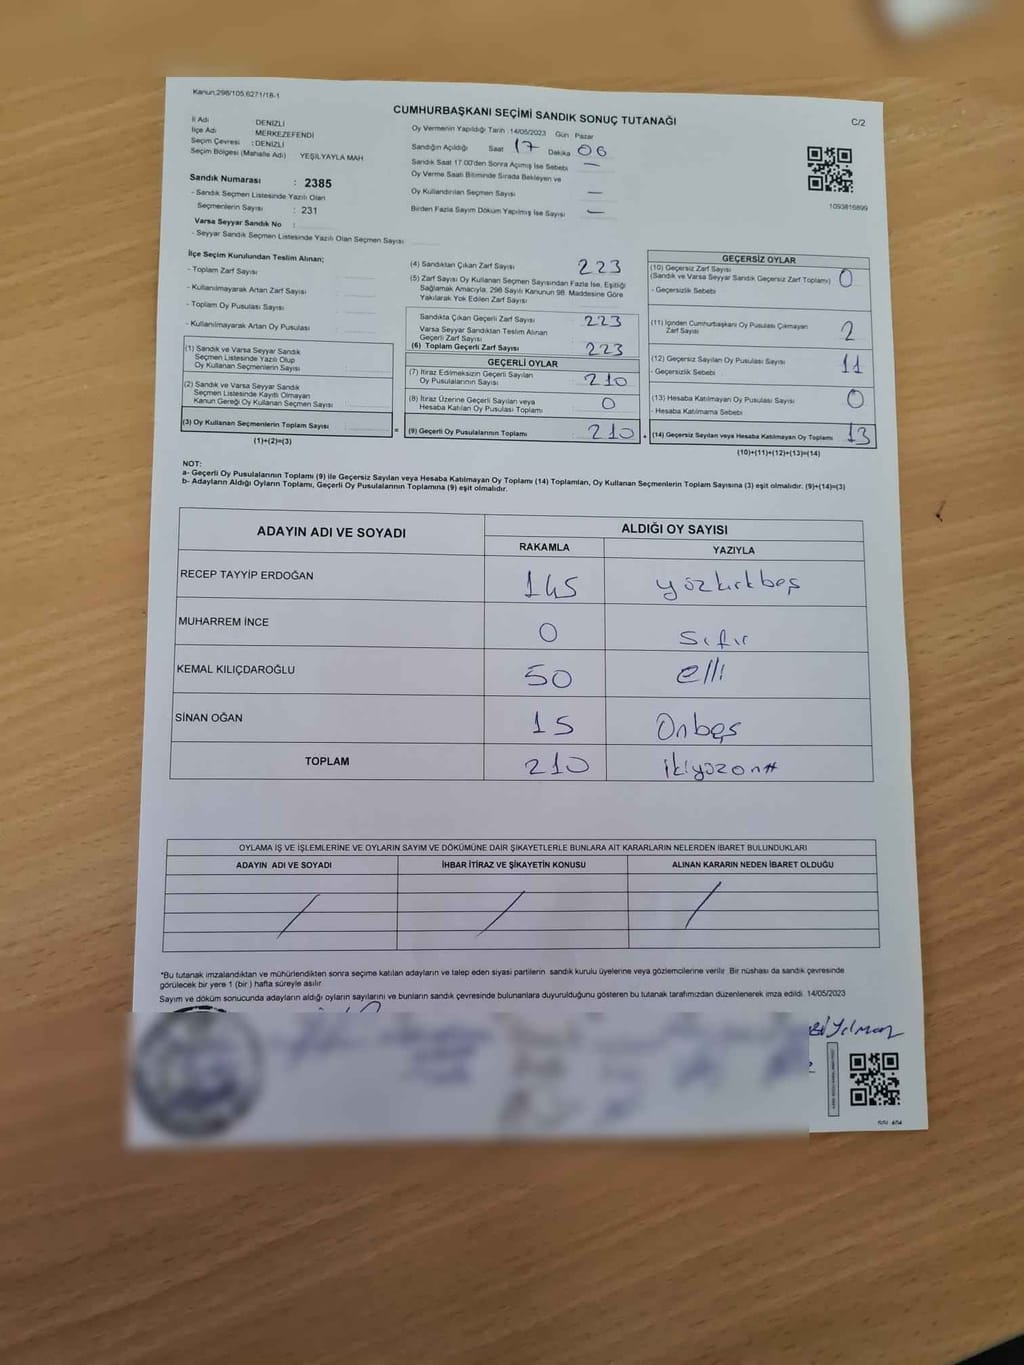 Kanun,298/105,6271/18-1
CUMHURBAŞKANI SEÇİMİ SANDIK SONUÇ TUTANAĞI
C/2
İl Adı DENİZLİ
İlçe Adı MERKEZEFENDİ
Seçim Çevresi : DENİZLİ
Seçim Bölgesi (Mahalle Adı) YEŞİLYAYLA MAH
Sandık Numarası : 2385
- Sandık Seçmen Listesinde Yazılı Olan
Seçmenlerin Sayısı : 231
Varsa Seyyar Sandık No :
- Seyyar Sandık Seçmen Listesinde Yazılı Olan Seçmen Sayısı
Oy Vermenin Yapıldığı Tarih : 14/05/2023 Gün Pazar
Sandığın Açıldığı Saat 17 Dakika 06
Sandık Saat 17.00'den Sonra Açılmış İse Sebebi —
Oy Verme Saati Bitiminde Sırada Bekleyen ve
Oy Kullandırılan Seçmen Sayısı —
Birden Fazla Sayım Döküm Yapılmış İse Sayısı —
1093816899
İlçe Seçim Kurulundan Teslim Alınan;
- Toplam Zarf Sayısı
- Kullanılmayarak Artan Zarf Sayısı
- Toplam Oy Pusulası Sayısı
- Kullanılmayarak Artan Oy Pusulası
(1) Sandık ve Varsa Seyyar Sandık
Seçmen Listesinde Yazılı Olup
Oy Kullanan Seçmenlerin Sayısı
(2) Sandık ve Varsa Seyyar Sandık
Seçmen Listesinde Kayıtlı Olmayan
Kanun Gereği Oy Kullanan Seçmen Sayısı
(3) Oy Kullanan Seçmenlerin Toplam Sayısı
(1)+(2)=(3)
=
(4) Sandıktan Çıkan Zarf Sayısı 223
(5) Zarf Sayısı Oy Kullanan Seçmen Sayısından Fazla İse, Eşitliği
Sağlamak Amacıyla, 298 Sayılı Kanunun 98. Maddesine Göre
Yakılarak Yok Edilen Zarf Sayısı
Sandıkta Çıkan Geçerli Zarf Sayısı 223
Varsa Seyyar Sandıktan Teslim Alınan
Geçerli Zarf Sayısı
(6) Toplam Geçerli Zarf Sayısı 223
GEÇERLİ OYLAR
(7) İtiraz Edilmeksizin Geçerli Sayılan
Oy Pusulalarının Sayısı 210
(8) İtiraz Üzerine Geçerli Sayılan veya
Hesaba Katılan Oy Pusulası Toplamı 0
(9) Geçerli Oy Pusulalarının Toplamı 210
+
GEÇERSİZ OYLAR
(10) Geçersiz Zarf Sayısı
(Sandık ve Varsa Seyyar Sandık Geçersiz Zarf Toplamı) 0
- Geçersizlik Sebebi
(11) İçinden Cumhurbaşkanı Oy Pusulası Çıkmayan
Zarf Sayısı 2
(12) Geçersiz Sayılan Oy Pusulası Sayısı 11
- Geçersizlik Sebebi
(13) Hesaba Katılmayan Oy Pusulası Sayısı 0
- Hesaba Katılmama Sebebi
(14) Geçersiz Sayılan veya Hesaba Katılmayan Oy Toplamı 13
(10)+(11)+(12)+(13)=(14)
NOT:
a- Geçerli Oy Pusulalarının Toplamı (9) ile Geçersiz Sayılan veya Hesaba Katılmayan Oy Toplamı (14) Toplamları, Oy Kullanan Seçmenlerin Toplam Sayısına (3) eşit olmalıdır. (9)+(14)=(3)
b- Adayların Aldığı Oyların Toplamı, Geçerli Oy Pusulalarının Toplamına (9) eşit olmalıdır.
ADAYIN ADI VE SOYADI
ALDIĞI OY SAYISI
RAKAMLA YAZIYLA
RECEP TAYYİP ERDOĞAN 145 yüzkırkbeş
MUHARREM İNCE 0 sıfır
KEMAL KILIÇDAROĞLU 50 elli
SİNAN OĞAN 15 Onbeş
TOPLAM 210 ikiyüzon#
OYLAMA İŞ VE İŞLEMLERİNE VE OYLARIN SAYIM VE DÖKÜMÜNE DAİR ŞİKAYETLERLE BUNLARA AİT KARARLARIN NELERDEN İBARET BULUNDUKLARI
ADAYIN ADI VE SOYADI İHBAR İTİRAZ VE ŞİKAYETİN KONUSU ALINAN KARARIN NEDEN İBARET OLDUĞU
*Bu tutanak imzalandıktan ve mühürlendikten sonra seçime katılan adayların ve talep eden siyasi partilerin sandık kurulu üyelerine veya gözlemcilerine verilir. Bir nüshası da sandık çevresinde
görülecek bir yere 1 (bir) hafta süreyle asılır.
Sayım ve döküm sonucunda adayların aldığı oyların sayılarını ve bunların sandık çevresinde bulunanlara duyurulduğunu gösteren bu tutanak tarafımızdan düzenlenerek imza edildi. 14/05/2023
Yılmaz